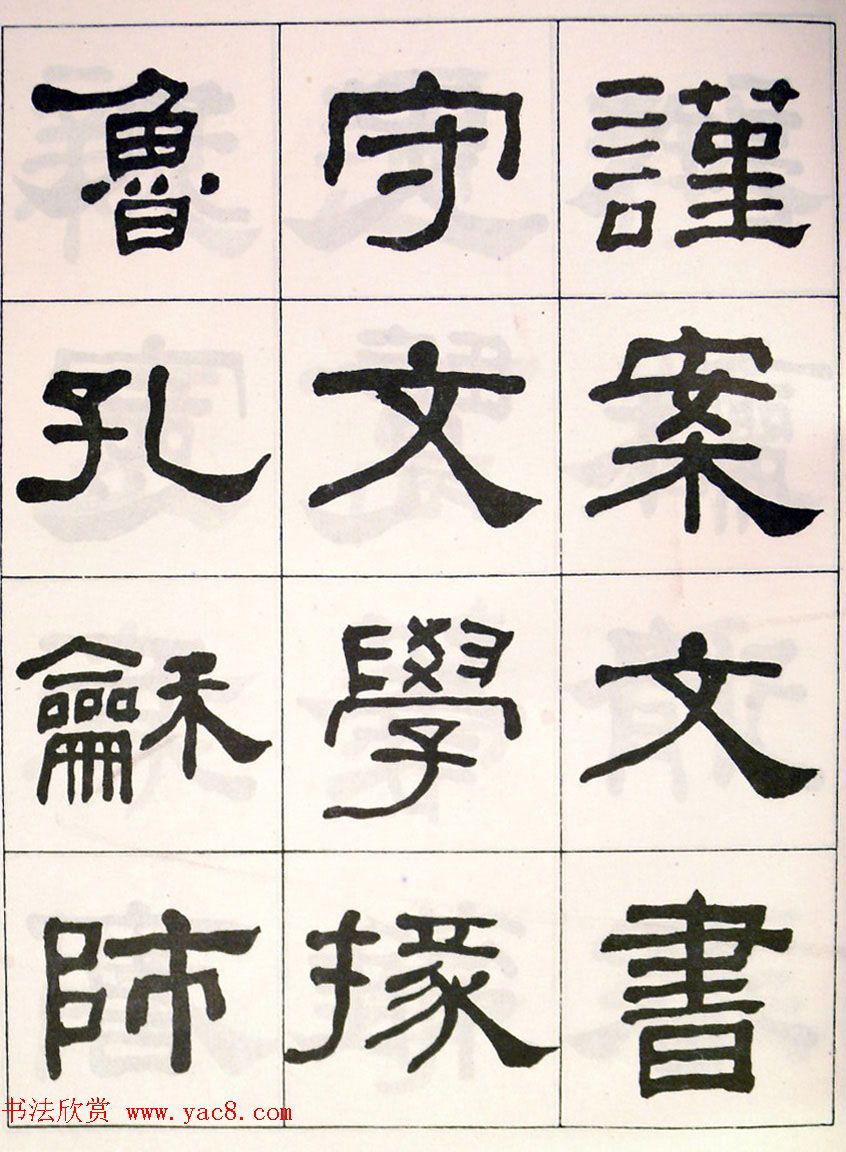 謹案文書
守文學掾
魯孔龢師
书法欣赏 www.yac8.com